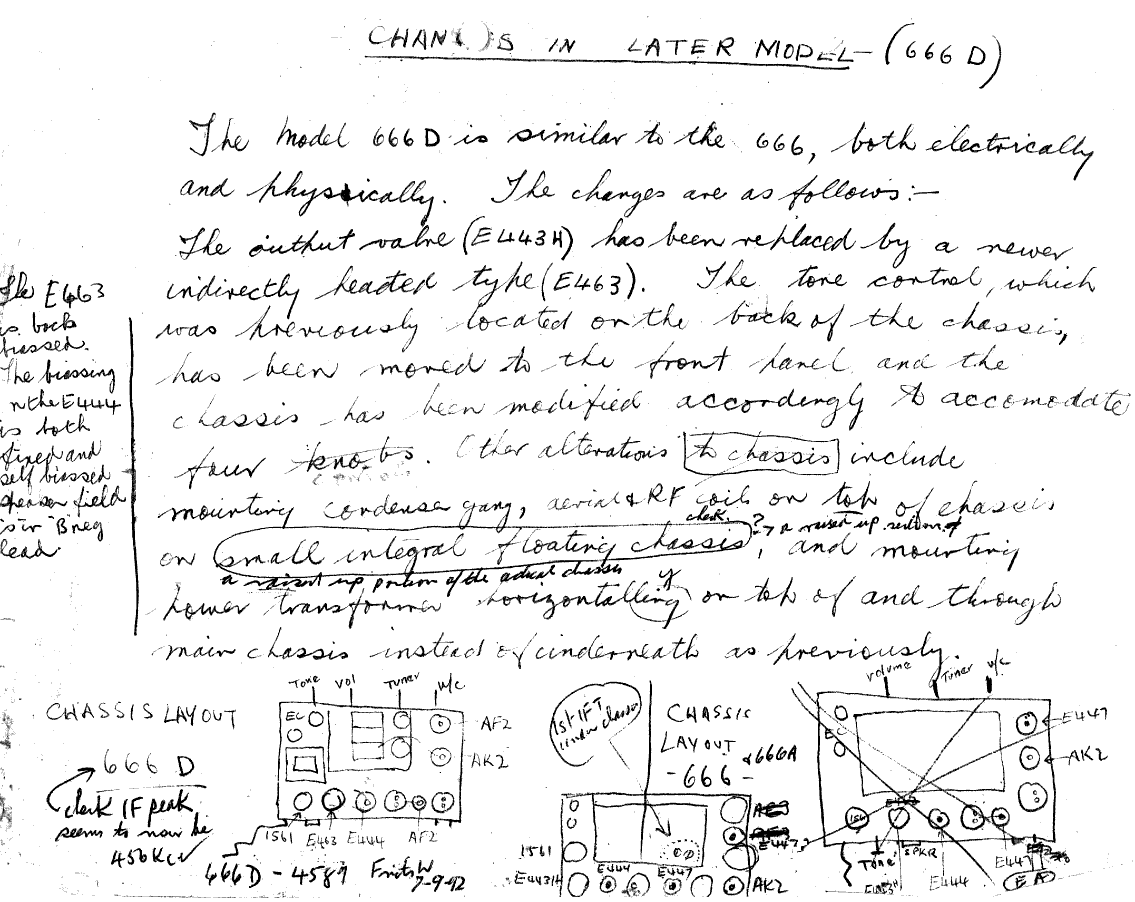 CHAN S IN LATER MODEL - (666 D)
The Model 666D is similar to the 666, both electrically
and physically. The changes are as follows:-
The output valve (E443H) has been replaced by a newer
indirectly heated type (E463). The tone control, which
was previously located on the back of the chassis,
has been moved to the front panel and the
chassis has been modified accordingly to accomodate
four knobs. Other alterations to chassis include
mounting condenser gang, aerial & RF coils on top of chassis
check ? → a raised up section of
on small integral floating chassis, and mounting
a raised up portion of the actual chassis
power transformer horizontalling y on top of and through
main chassis instead of underneath as previously.
The E463
is back
biassed.
The biassing
on the E444
is both
fixed and
self biassed
speaker field
is in B neg
lead.
CHASSIS LAYOUT
666 D
check IF peak
seems to now be
456 Kc
Tone Vol Tuner W/C
EC
AF2
AK2
1561 E463 E444 AF2
666D - 4587
7-9-92
1st IFT
under chassis
CHASSIS
LAYOUT
- 666 - & 666A
1561
E443H
E444
E447
E447?
AK2
Volume Tuner W/C
EC
E447
AK2
1561
Tone
SPKR
E444
E447